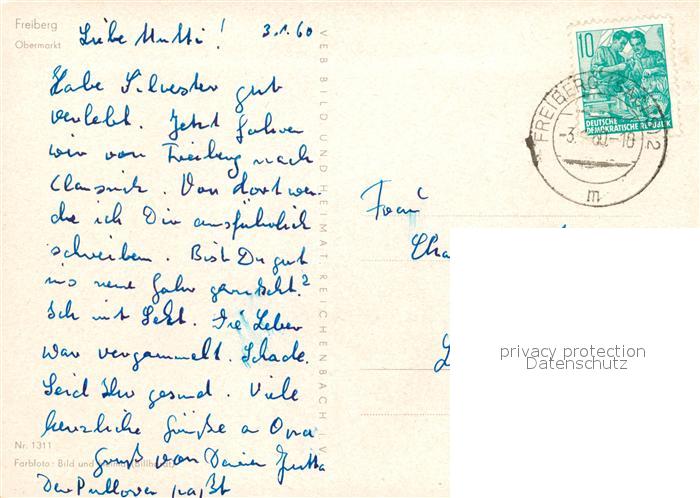 Freiberg
Obermarkt
Liebe Mutti! 3.1.60
Habe Silvester gut
verlebt. Jetzt fahren
wir von Freiberg nach
Von dort wer-
de ich Dir ausführlich
schreiben. Bist Du gut
ins neue Jahr gerutscht?
Ich mit Sekt. Die Leber
war vergammelt. Schade.
Seid Ihr gesund. Viele
herzliche Grüße a Opa
Gruß von Deiner Jutta
Der Pullover paßt
Nr. 1311
Farbfoto: Bild und Heimat
VEB BILD UND HEIMAT REICHENBACH I. V.
10
DEUTSCHE
DEMOKRATISCHE REPUBLIK
FREIBERG
-3. 60.-10
m
Frau
Cha
privacy protection
Datenschutz